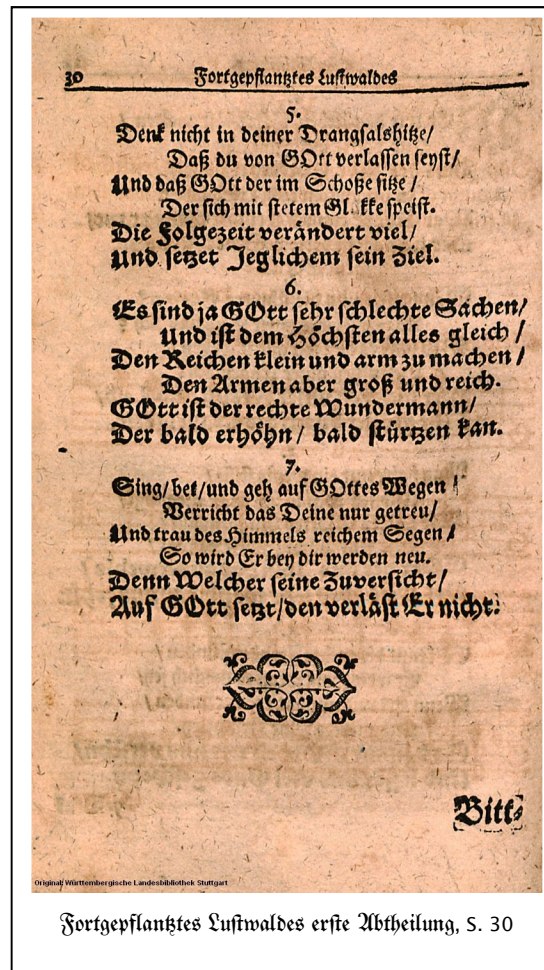 30 Fortgepflantztes Lustwaldes
5.
Denk nicht in deiner Drangsalshitze/
Daß du von GOtt verlassen seyst/
Und daß GOtt der im Schoße sitze/
Der sich mit stetem Gl kke speist.
Die Folgezeit verändert viel/
Und setzet Jeglichem sein Ziel.
6.
Es sind ja GOtt sehr schlechte Sachen/
Und ist dem Höchsten alles gleich/
Den Reichen klein und arm zu machen/
Den Armen aber groß und reich.
GOtt ist der rechte Wundermann/
Der bald erhöhn/ bald stürtzen kan.
7.
Sing/bet/und geh auf GOttes Wegen/
Verricht das Deine nur getreu/
Und trau des Himmels reichem Segen/
So wird Er bey dir werden neu.
Denn Welcher seine Zuversicht/
Auf GOtt setzt/den verläst Er nicht.
Bitt-
Original: Württembergische Landesbibliothek Stuttgart
Fortgepflantztes Lustwaldes erste Abtheilung, S. 30